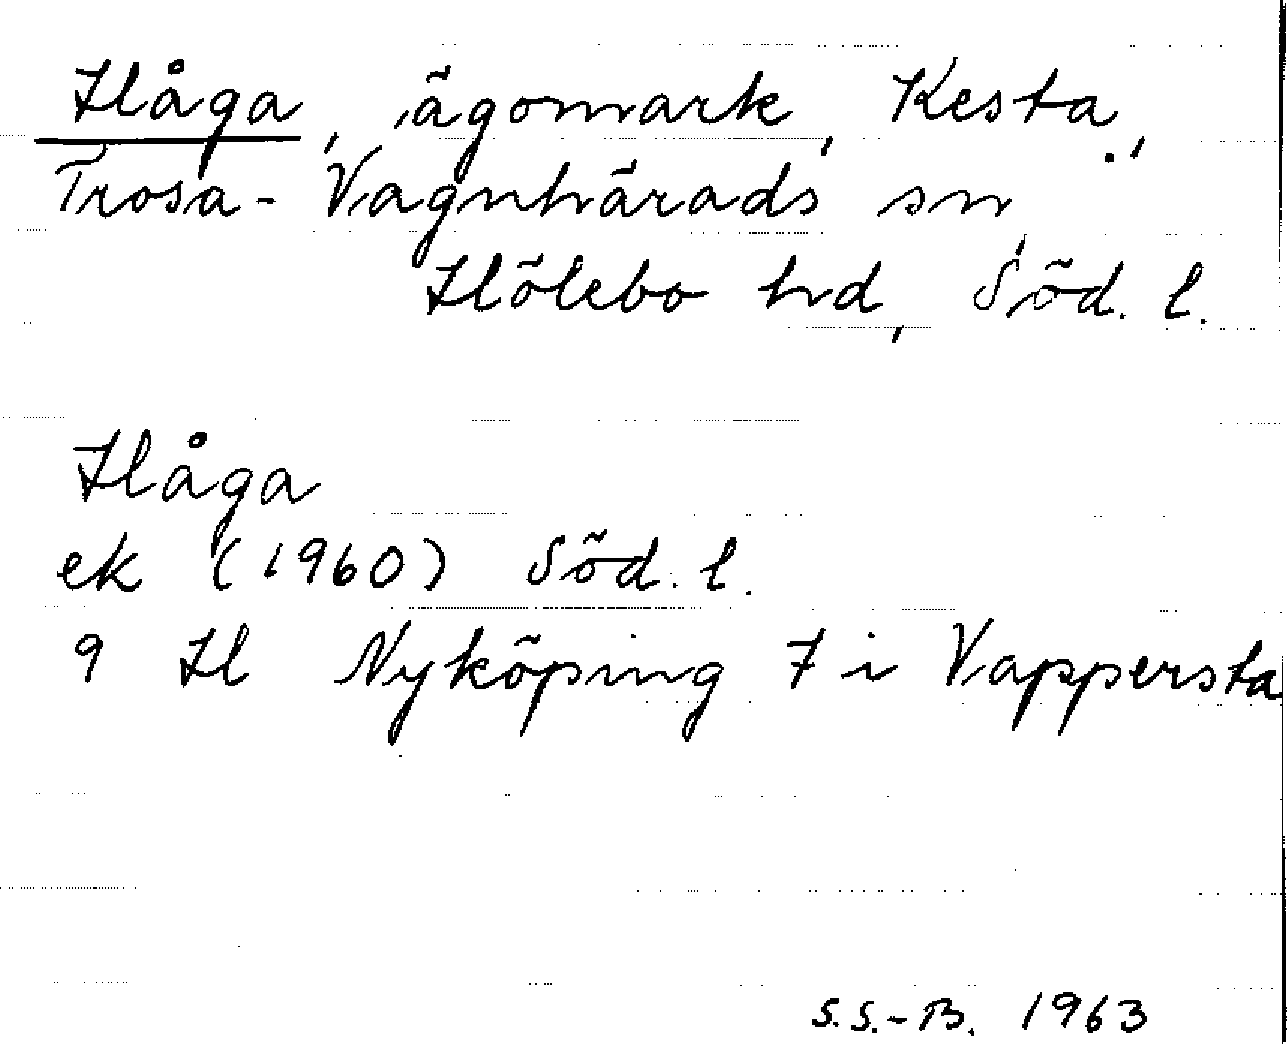 Håga, ägomark, Kesta,
Trosa-Vagnhärads sn,
Hölebo hd, Söd. l.
Håga
ek (1960) Söd. l.
9 H Nyköping 7 i Vappersta
S.S.-B. 1963